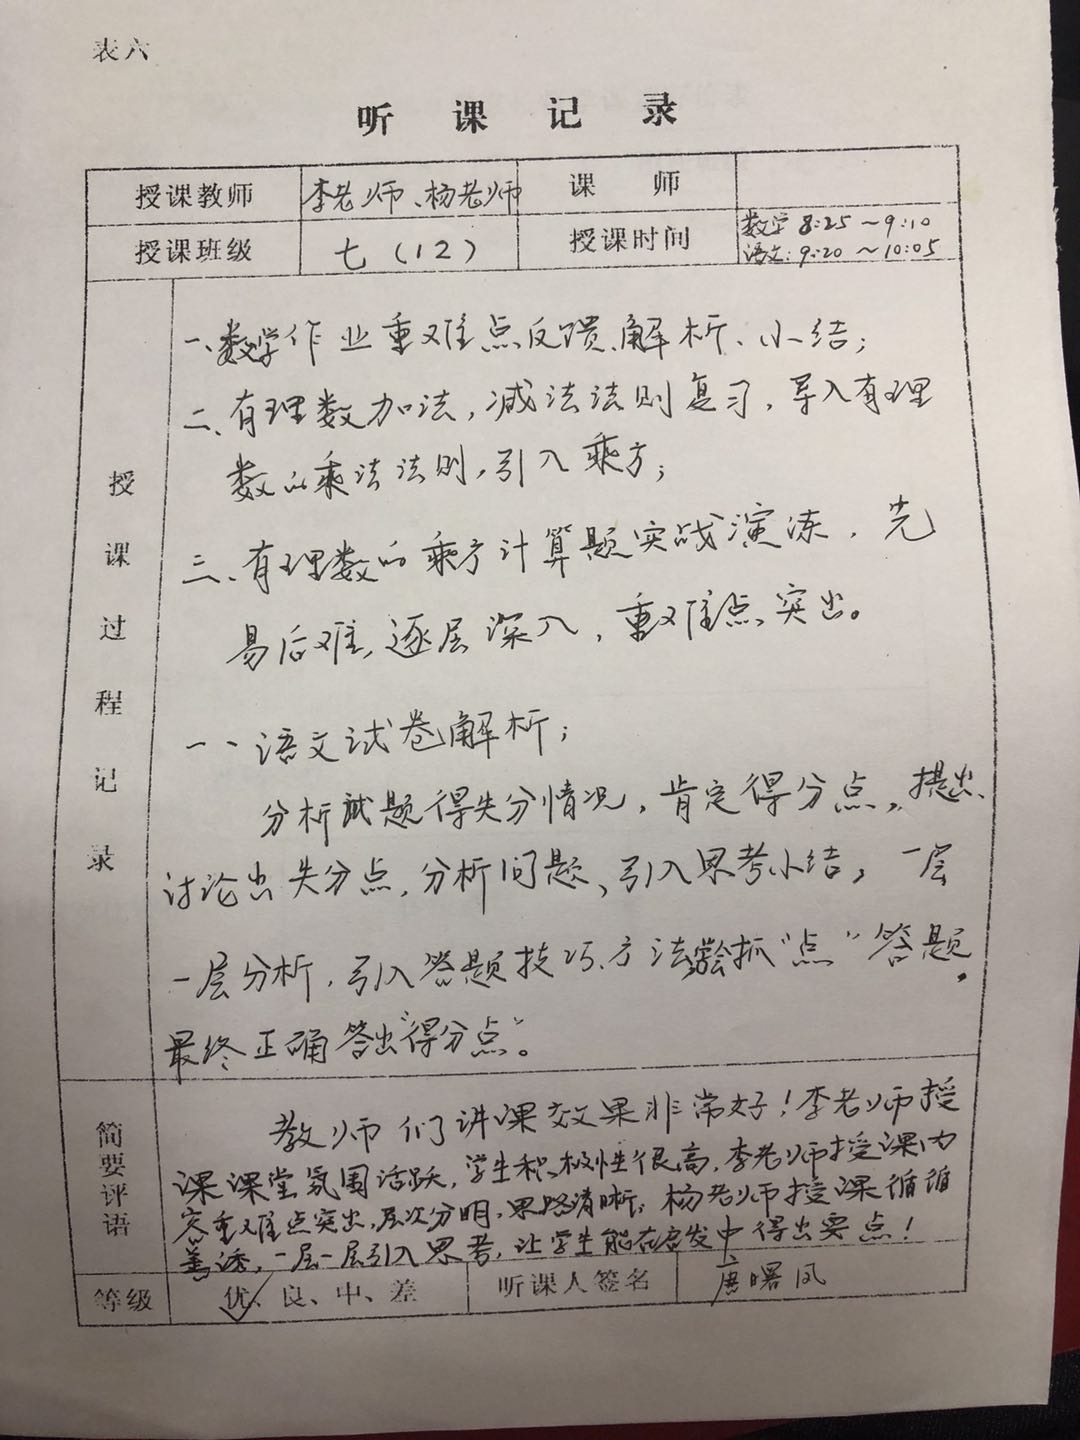 表六
听 课 记 录
授课教师 李老师、杨老师 课 师
授课班级 七（12） 授课时间 数学 8:25～9:10
语文:9:20～10:05
授课过程记录
一、数学作业重难点反馈、解析、小结；
二、有理数加法，减法法则复习，导入有理
数的乘法法则，引入乘方；
三、有理数的乘方计算题实战演练，先
易后难，逐层深入，重难点突出。
一、语文试卷解析；
分析试题得失分情况，肯定得分点，提出、
讨论出失分点，分析问题、引入思考小结，一层
一层分析，引入答题技巧、方法尝抓“点”答题，
最终正确答出“得分点”。
简要评语
教师们讲课效果非常好！李老师授
课课堂氛围活跃，学生积极性很高，李老师授课内
容重难点突出，层次分明，思路清晰；杨老师授课循循
善诱，一层一层引入思考，让学生能在启发中得出要点！
等级 优、良、中、差 听课人签名 唐曙凤